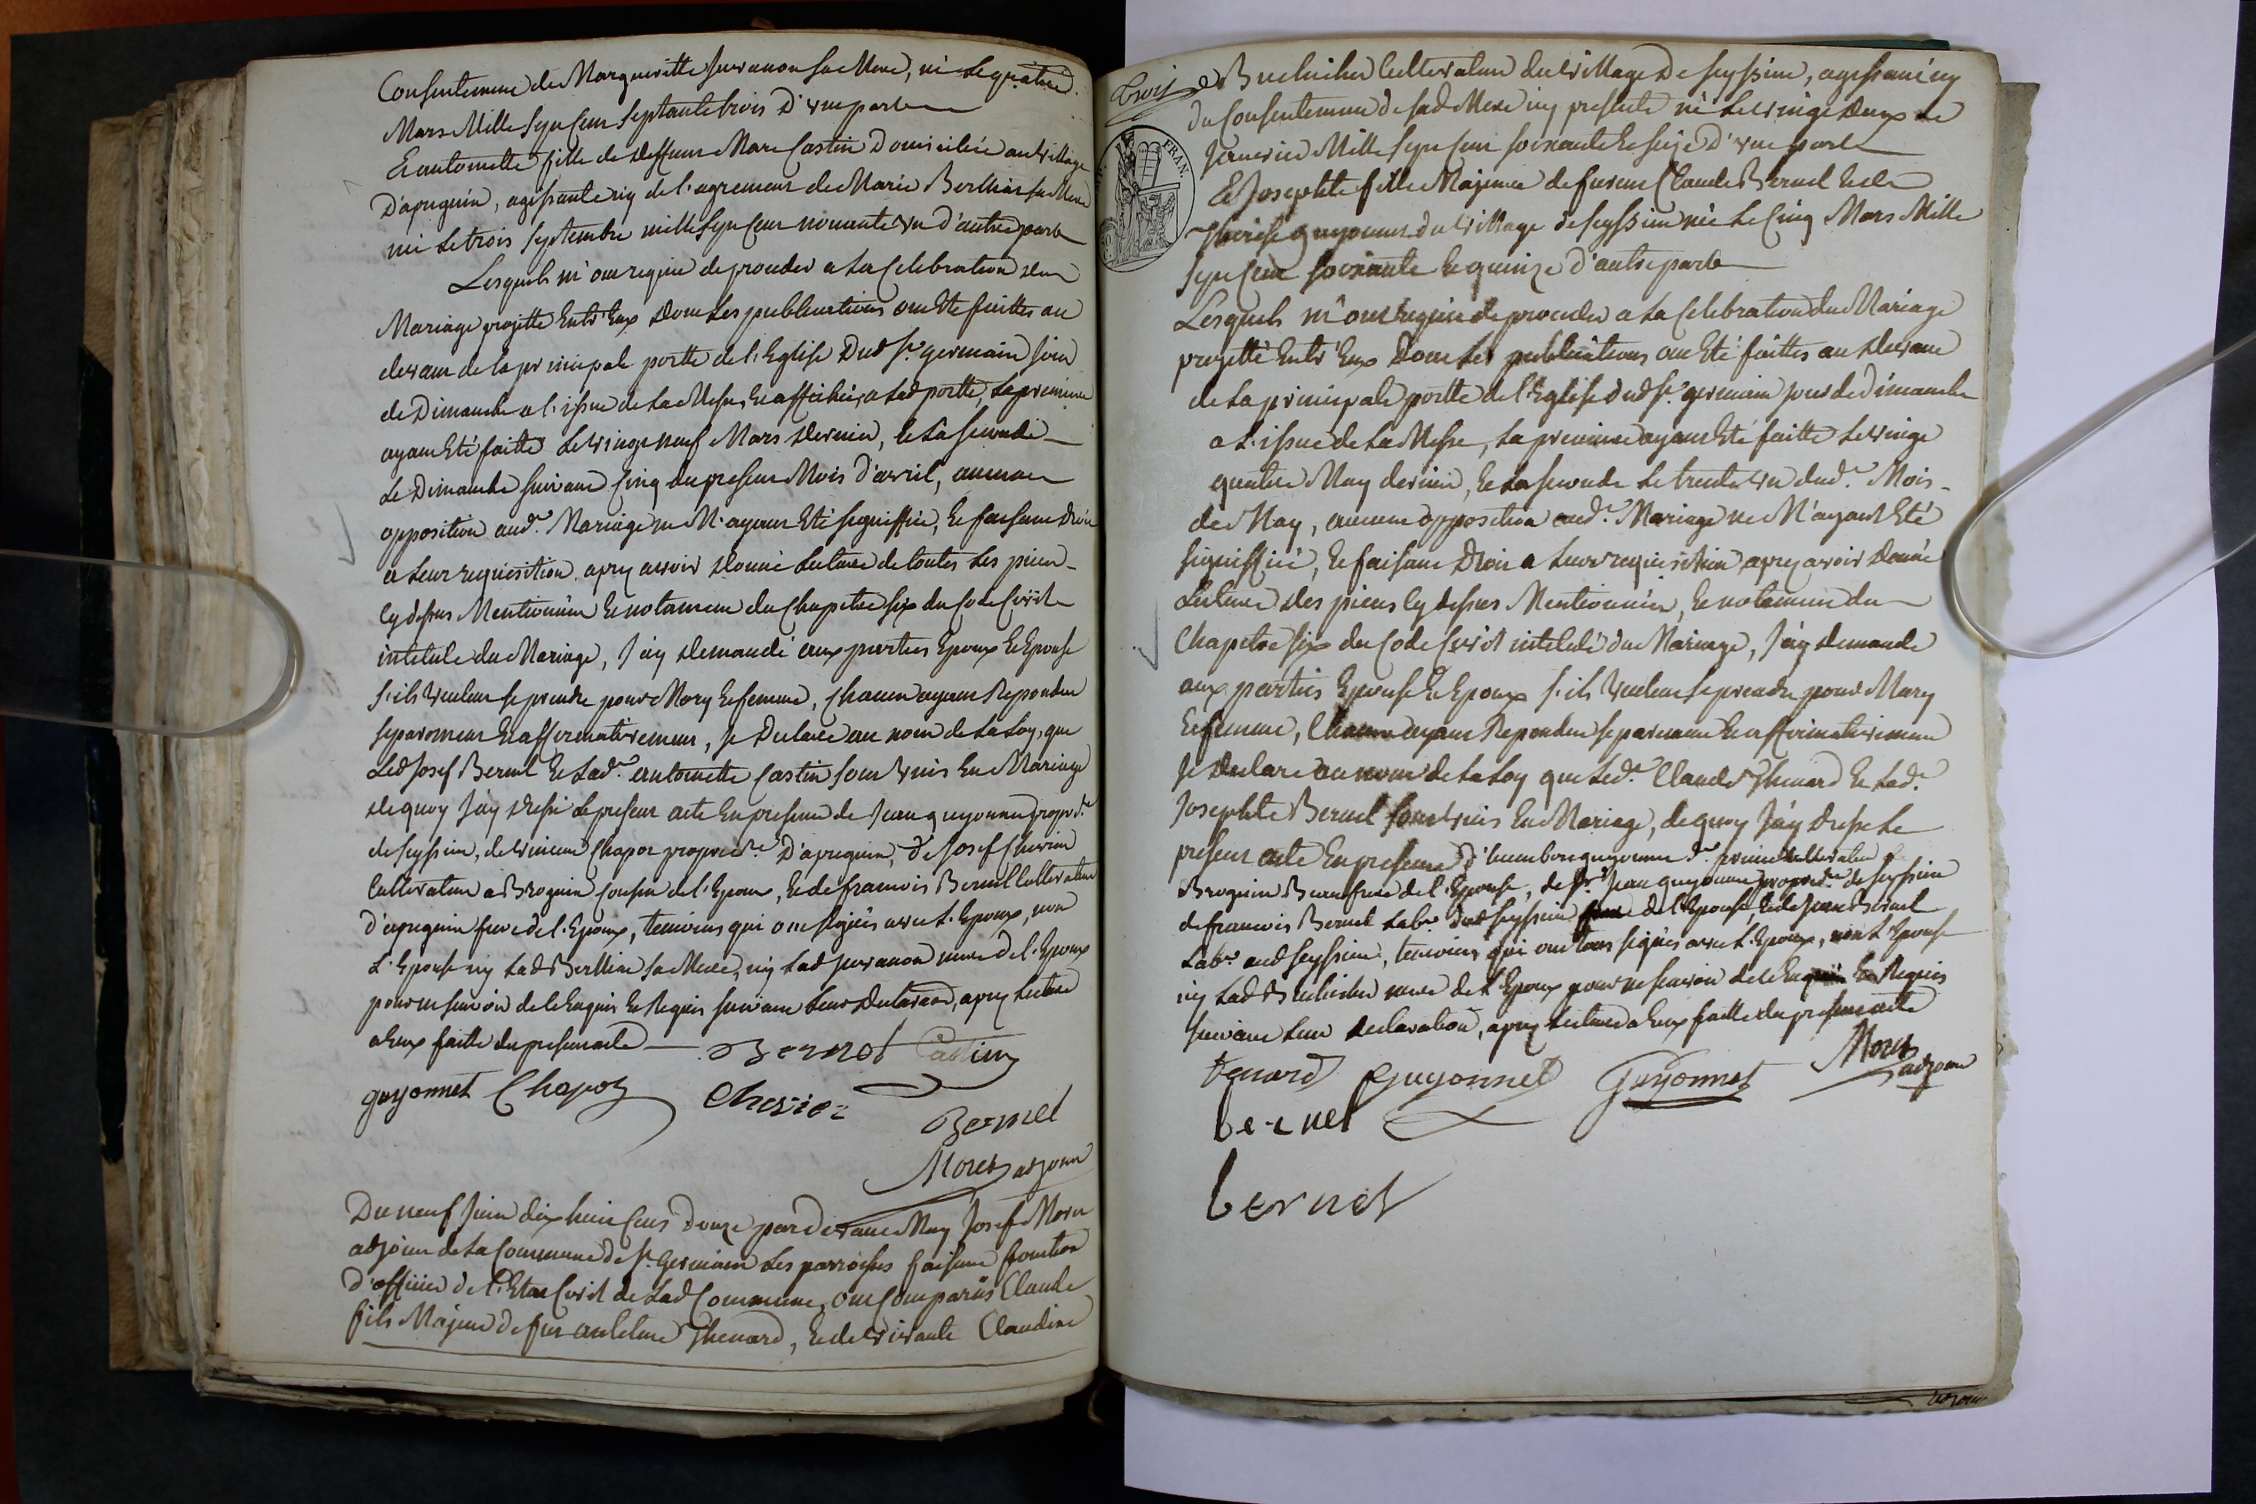 Consentement de Margueritte Juvanon sa Mere, né le quatre
Mars Mille sept cent septante trois D'une part
Et antoinette fille de deffunt Marc Castin Domiciliée au village
D'apregnin, agissante icy de l'agrement de Marie Berlliat sa Mere
née le trois septembre mille sept cent nonante un d'autre part
Lesquels m'ont requis de proceder a la Celebration du
Mariage projetté Entr'Eux dont les publications ont Eté faittes au
devant de la principale portte de l'Eglise Dud St. germain jour
de Dimanche a l'issue de la Messe, Et affichées a lad portte, la premiere
ayant Eté faitte le vingt neuf Mars dernier, Et la seconde
Le Dimanche suivant cinq du present Mois d'avril, aucune
opposition aud.t Mariage ne M'ayant Eté signiffiée, Et faisant droit
a leur requisition, apres avoir donné lecture de toutes les pieces
cy dessus Mentionnées Et notament du Chapitre six du Code Civil
intitulé du Mariage, J'ay demandé aux parties Epoux Et Epouse
s'ils veulent se prendre pour Mary Et femme, Chacun ayant Repondu
separement Et affirmativement, je Declare au nom de la Loy, que
Led Josef Bernet Et Lad.te antoinette Castin sont unis En Mariage
de quoy J'ay dressé le present acte En presence de Jean guyonnet propr.re
de seyssieu, de vincent Chapot propriet.re D'apregnin, de Josef
Cultivateur a Brognin cousin de l'Epoux, Et de francois Bernet Cultivateur
d'apregnin frere de l'Epoux, temoins qui ont signés avec L'Epoux, non
L'Epouse ny Lad Berlliat sa Mere, ny Lad Juvanon mere de l'Epoux
pour ne savoir de ce Enquis Et Requis suivant leur Declaration, apres lecture
a Eux faitte du present acte Bernet Castin
guyonnet Chapot
Bernet
Moret adjoint
Du neuf Juin dix huit Cent Douze par devant Moy Josef Moret
adjoint de la Commune de St. Germain Les parroisses faisant fonction
d'officier de l'Etat Civil de Lad Commune, ont Comparus Claude
fils Majeur de feu antelme Thenard, Et de vivante Claudine
trois
Cultivateur du village De seyssieu, agissant icy
du Consentement de sad Mere icy presente né Le vingt Deux de
Janvier Mille sept cent soixante Et seize D'une part
Et Josephte fille Majeure de furent Claude Bernet Et de
Therese guyonnet du village de seyssieu née Le Cinq Mars Mille
sept cent soixante Et quinze d'autre part
Lesquels m'ont requis de proceder a la Celebration du Mariage
projetté Entr'Eux Dont les publications ont Eté faittes au devant
de la principale portte de l'Eglise dud St. germain jour de Dimanche
a l'issue de La Messe, la premiere ayant Eté faitte le vingt
quatre May dernier, Et la seconde le trente un dud.t Mois
de May, aucune opposition aud.t Mariage ne M'ayant Eté
signiffiée, Et faisant Droit a leur requisition apres avoir donné
Lecture des pieces cy dessus Mentionnées, Et notament du
Chapitre six du Code Civil intitulé du Mariage, J'ay demandé
aux parties Epouse Et Epoux s'ils veulent se prendre pour Mary
Et femme, Chacun ayant Repondu separement Et affirmativement
Je Declare au nom de la Loy que Led.t Claude Thenard Et Lad.te
Josephte Bernet sont unis En Mariage, de quoy J'ay Dressé Le
present acte En presence d' guyonnet Cultivateur
Brognin Beaufrere de l'Epouse, de Sr. Jean guyonnet propriet.re de seyssieu
de francois Bernet Lab.r Dud seyssieu frere de l'Epouse, Et de Jean Bernet
Lab.r aud seyssieu, temoins qui ont tous signés avec L'Epoux, non L'Epouse
ny Lad mere de L'Epoux pour ne savoir de ce Enquis Et Requis
suivant leur declaration, apres lecture a Eux faitte du present acte
tenard Guyonnet Guyonnet Moret adjoint
bernet
bernet